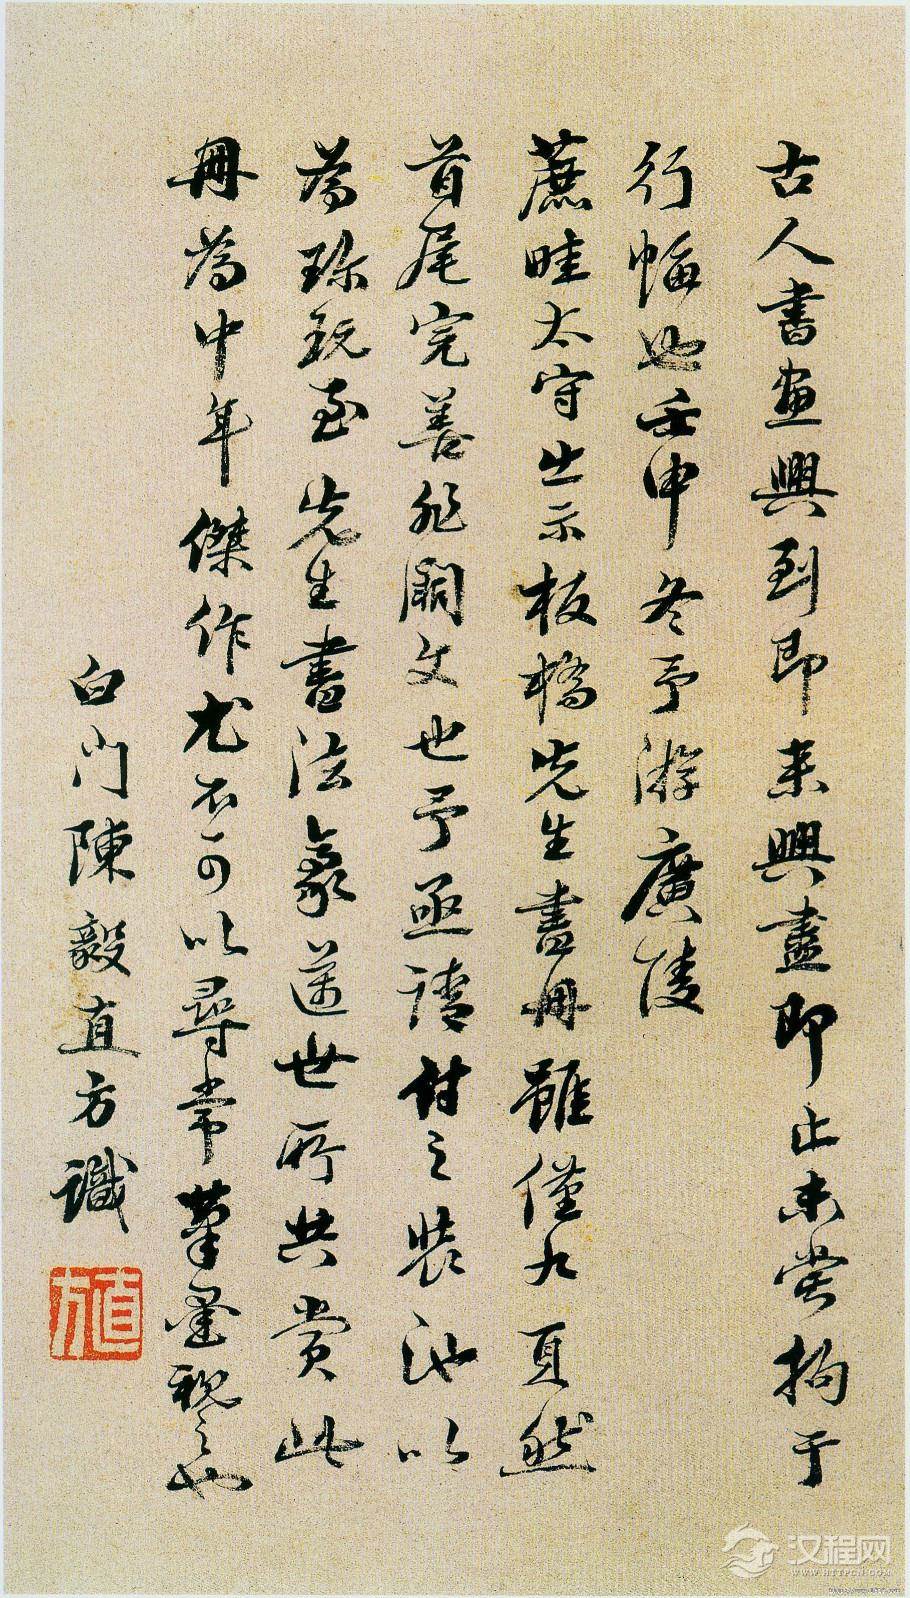 古人書画興到即来興盡即止未嘗拘于
行幅也壬申冬予游廣陵
蔗畦太守出示板橋先生書冊雖僅九頁然
首尾完善非闕文也予亟請付之裝池以
為珍玩至先生書法豪邁世所共賞此
冊為中年傑作尤不可以尋常筆墨視之也
白門陳毅直方識
直方
汉程网
WWW.HTTPCN.COM